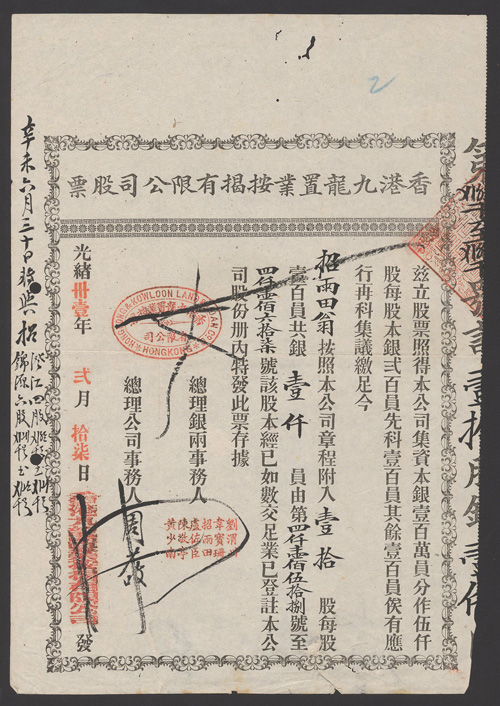 香港九龍置業按揭有限公司股票
茲立股票照得本公司集資本銀壹百萬員分作伍仟
股每股本銀弍百員先科壹百員其餘壹百員俟有應
行再科集議繳足今
招雨田翁按照本公司章程附入壹拾股每股
壹百員共銀壹仟員由第四仟壹佰伍拾捌號至
四仟壹佰六拾柒號該股本經已如數交足業已登註本公
司股份册內特發此票存據
總理銀兩事務人
總理公司事務人
劉渭川
韋寶珊
招雨田
盧佐臣
陳啟亭
黃少南
光緒卅壹年弍月拾柒日發
HONGKONG & KOWLOON LAND & LOAN CO
HONGKONG
辛未六月三十日
2